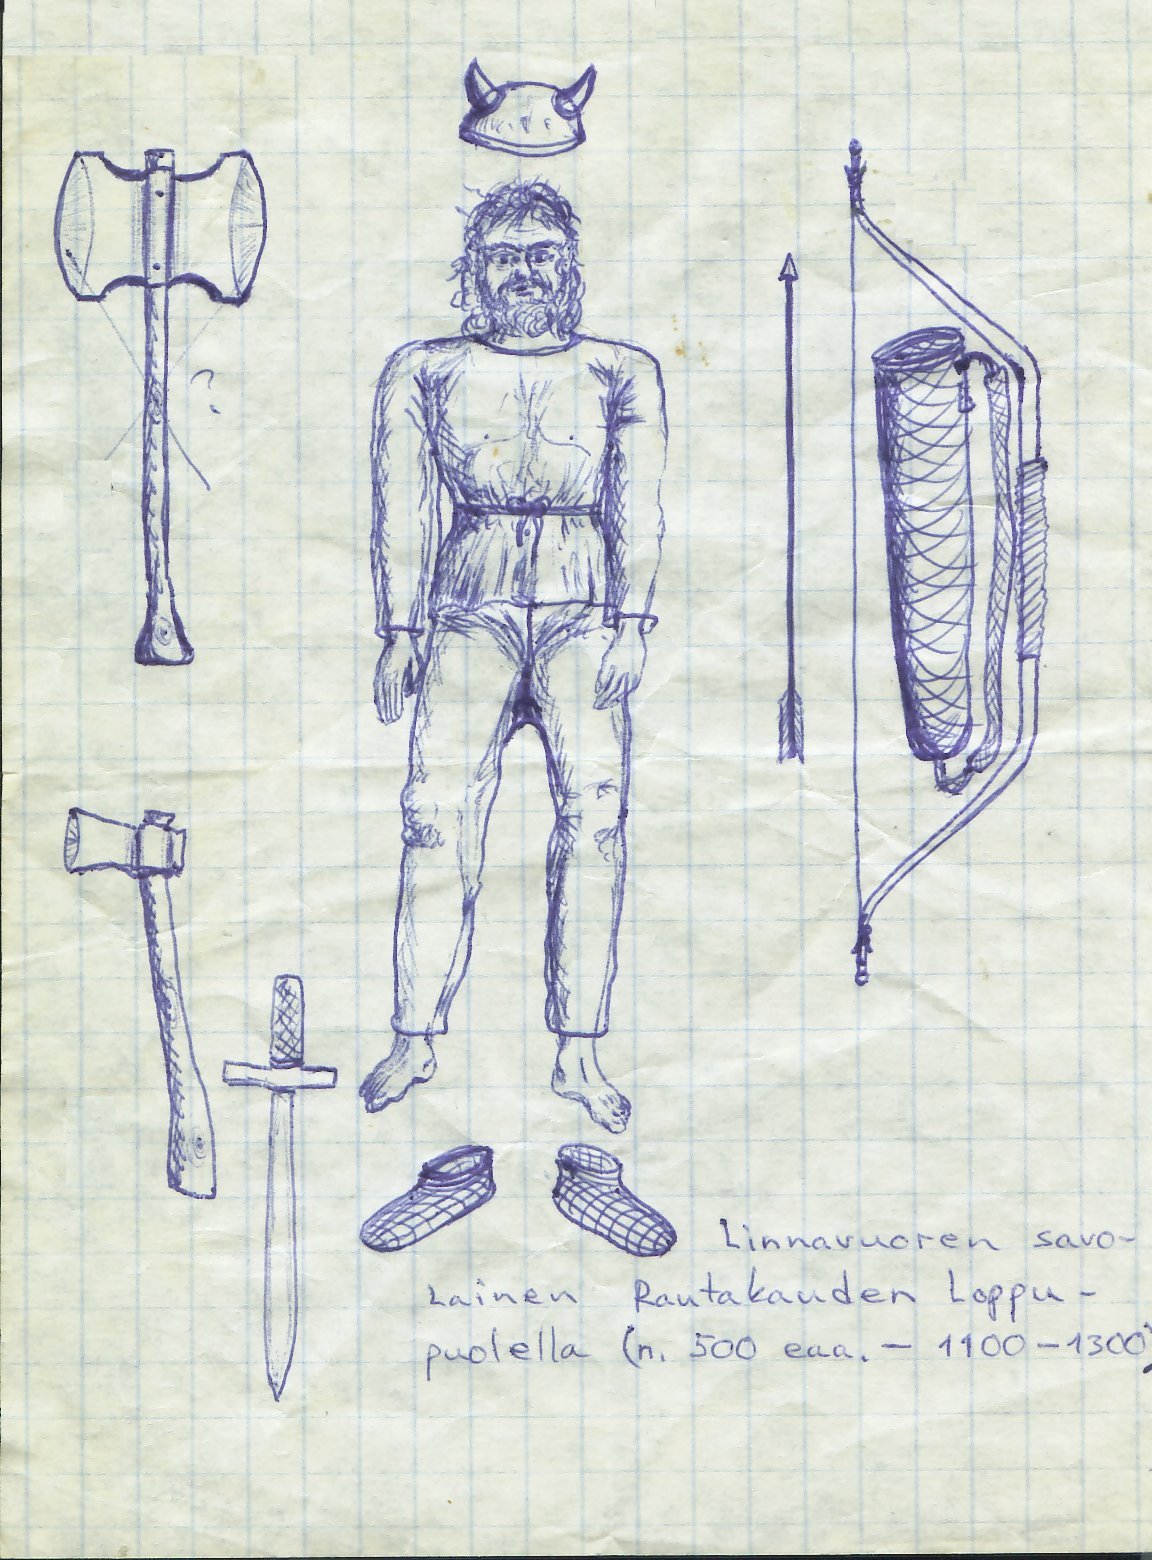 ?
Linnavuoren savo-
lainen Rautakauden Loppu-
puolella (n. 500 eaa. - 1100-1300)